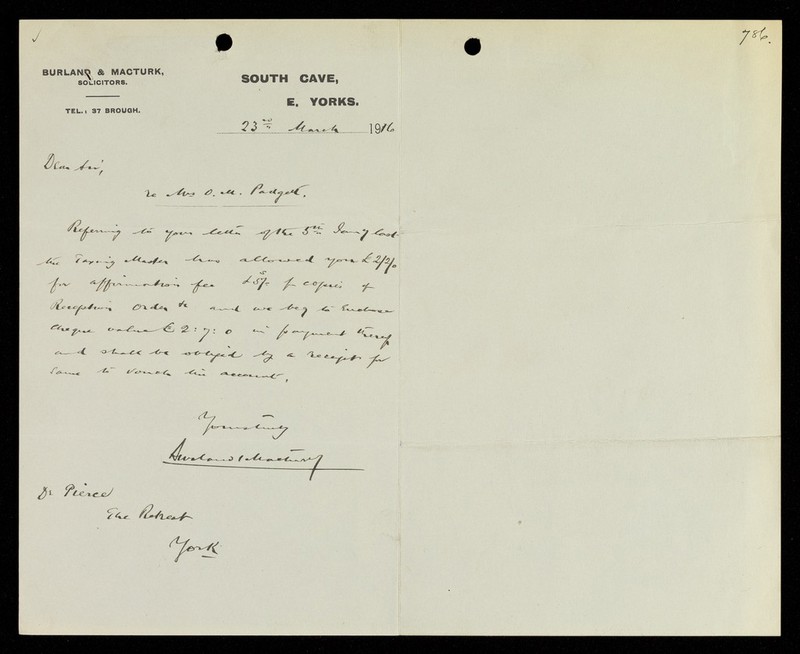 786.
BURLAND & MACTURK,
SOLICITORS.
TEL.: 37 BROUGH.
SOUTH CAVE,
E. YORKS.
23rd March 1916
Dear Sir,
re Mrs O. M. Padgett.
Referring to your letter of the 5th Jan'y last
the Taxing Master has allowed you £2/2/0
for affirmation fee & 5/- for copies of
Reception Order &c and we beg to enclose
cheque value £2:7:0 in payment thereof
and shall be obliged by a receipt for
same to vouch the account.
Yours truly
Burland & Macturk
Dr Pierce
The Retreat
York